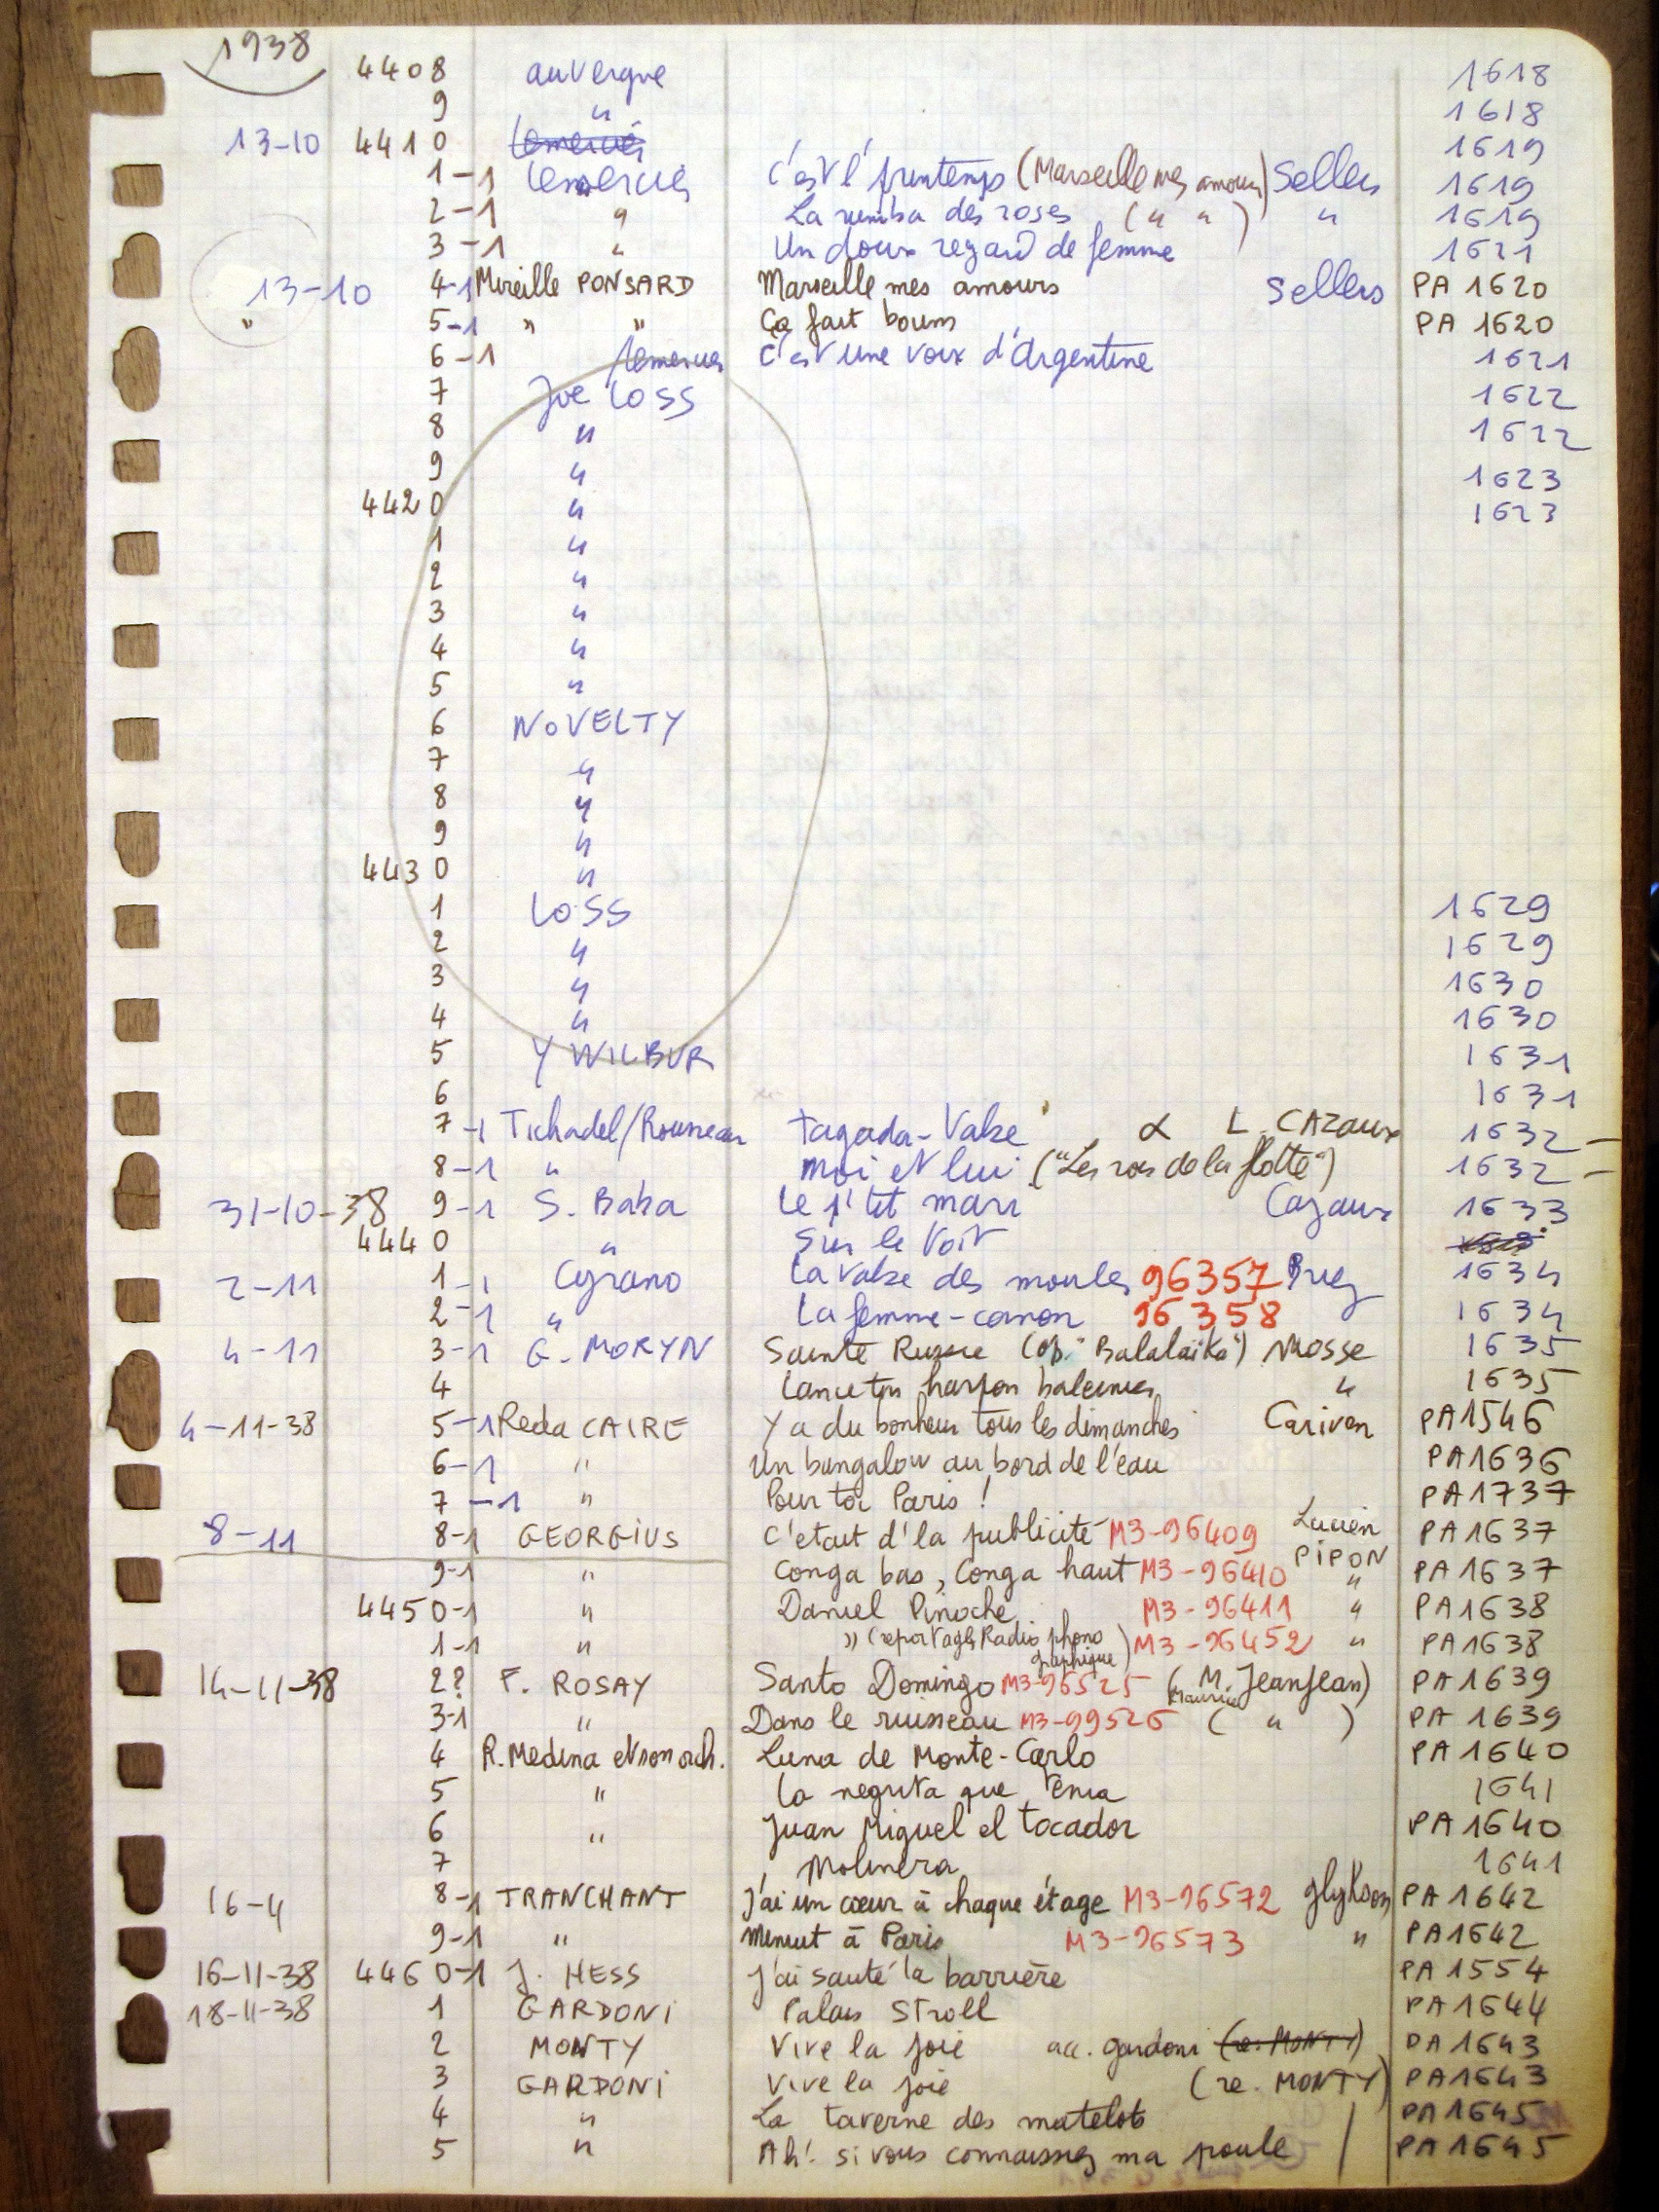 1938 4408 auvergne 1618
9 " 1618
13-10 4410 Lemercier 1619
1-1 Lemercier C'est l'printemps (Marseille mes amours) Sellers 1619
2-1 " La rumba des roses (" ") " 1619
3-1 " Un doux regard de femme 1621
13-10 4-1 Mireille PONSARD Marseille mes amours Sellers PA 1620
" 5-1 " " Ça fait boum PA 1620
6-1 Lemercier C'est une voix d'Argentine 1621
7 Joe LOSS 1622
8 " 1622
9 " 1623
4420 " 1623
1 "
2 "
3 "
4 "
5 "
6 NOVELTY
7 "
8 "
9 "
4430 "
1 LOSS 1629
2 " 1629
3 " 1630
4 " 1630
5 Y WILBUR 1631
6 1631
7-1 Tichadel/Rousseau Tagada-Valse L. CAZaux 1632 -
8-1 " Moi et lui ("Les rois de la flotte") 1632 -
31-10-38 9-1 S. Baba Le p'tit mari Cazaux 1633
4440 " Sur le toit
2-11 1-1 Cyrano La valse des moules 96357 1634
2-1 " La femme-canon 96358 1634
4-11 3-1 G. MORYN Sainte Russie (op. "Balalaïka") Mosse 1635
4 Lance ton harpon baleinier " 1635
4-11-38 5-1 Reda CAIRE Y a du bonheur tous les dimanches Cariven PA1546
6-1 " Un bungalow au bord de l'eau PA1636
7-1 " Pour toi Paris ! PA1737
8-11 8-1 GEORGiUS C'etait d'la publicité M3-96409 Lucien PiPON PA1637
9-1 " Conga bas, Conga haut M3-96410 " PA1637
4450-1 " Daniel Pinoche M3-96411 " PA1638
1-1 " " (reportages Radio phonographique) M3-96452 " PA1638
14-11-38 2? F. ROSAY Santo Domingo M3-96525 (M. Maurice JeanJean) PA1639
3-1 " Dans le ruisseau M3-99526 ( " ) PA 1639
4 R. Medina et son orch. Luna de Monte-Carlo PA1640
5 " La negrita que tenia 1641
6 " Juan Miguel el tocador PA1640
7 Molinera 1641
16-4 8-1 TRANCHANT J'ai un cœur à chaque étage M3-96572 glykson PA1642
9-1 " Minuit à Paris M3-96573 " PA1642
16-11-38 4460-1 J. HESS J'ai sauté la barrière PA1554
18-11-38 1 GARDONi Palais Stroll PA1644
2 MONTY Vive la joie acc. gardoni (re. MONTY) PA1643
3 GARDONi Vive la joie (re. MONTY) PA1643
4 " La taverne des matelots PA1645
5 " Ah! si vous connaissiez ma poule PA1645